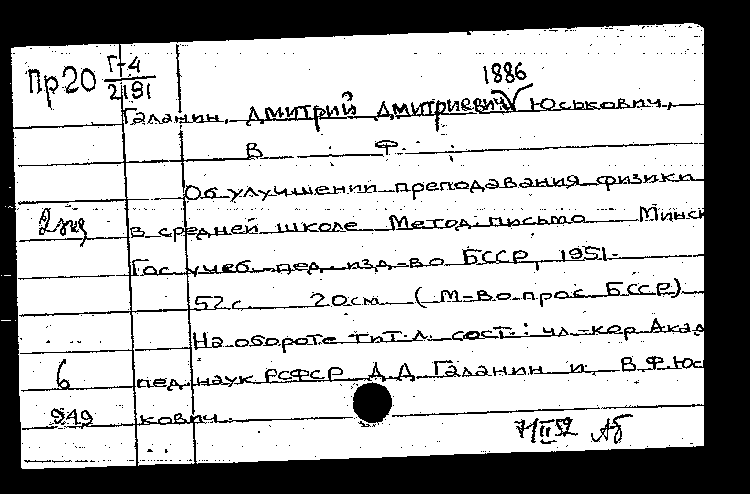 1886
Пр 20 Г-4
2191
Галанин, Дмитрий Дмитриевич Юськович,
В. Ф.
Об улучшении преподавания физики
2 экз в средней школе Метод. письмо Минск
Гос. учеб.-пед. изд-во БССР, 1951.
52 с. 20 см (М-во прос. БССР)
На обороте тит. л. сост.: чл.-кор Акад
6 пед. наук РСФСР Д.Д. Галанин и В.Ф. Юс
949 кович.
II 52 Аб